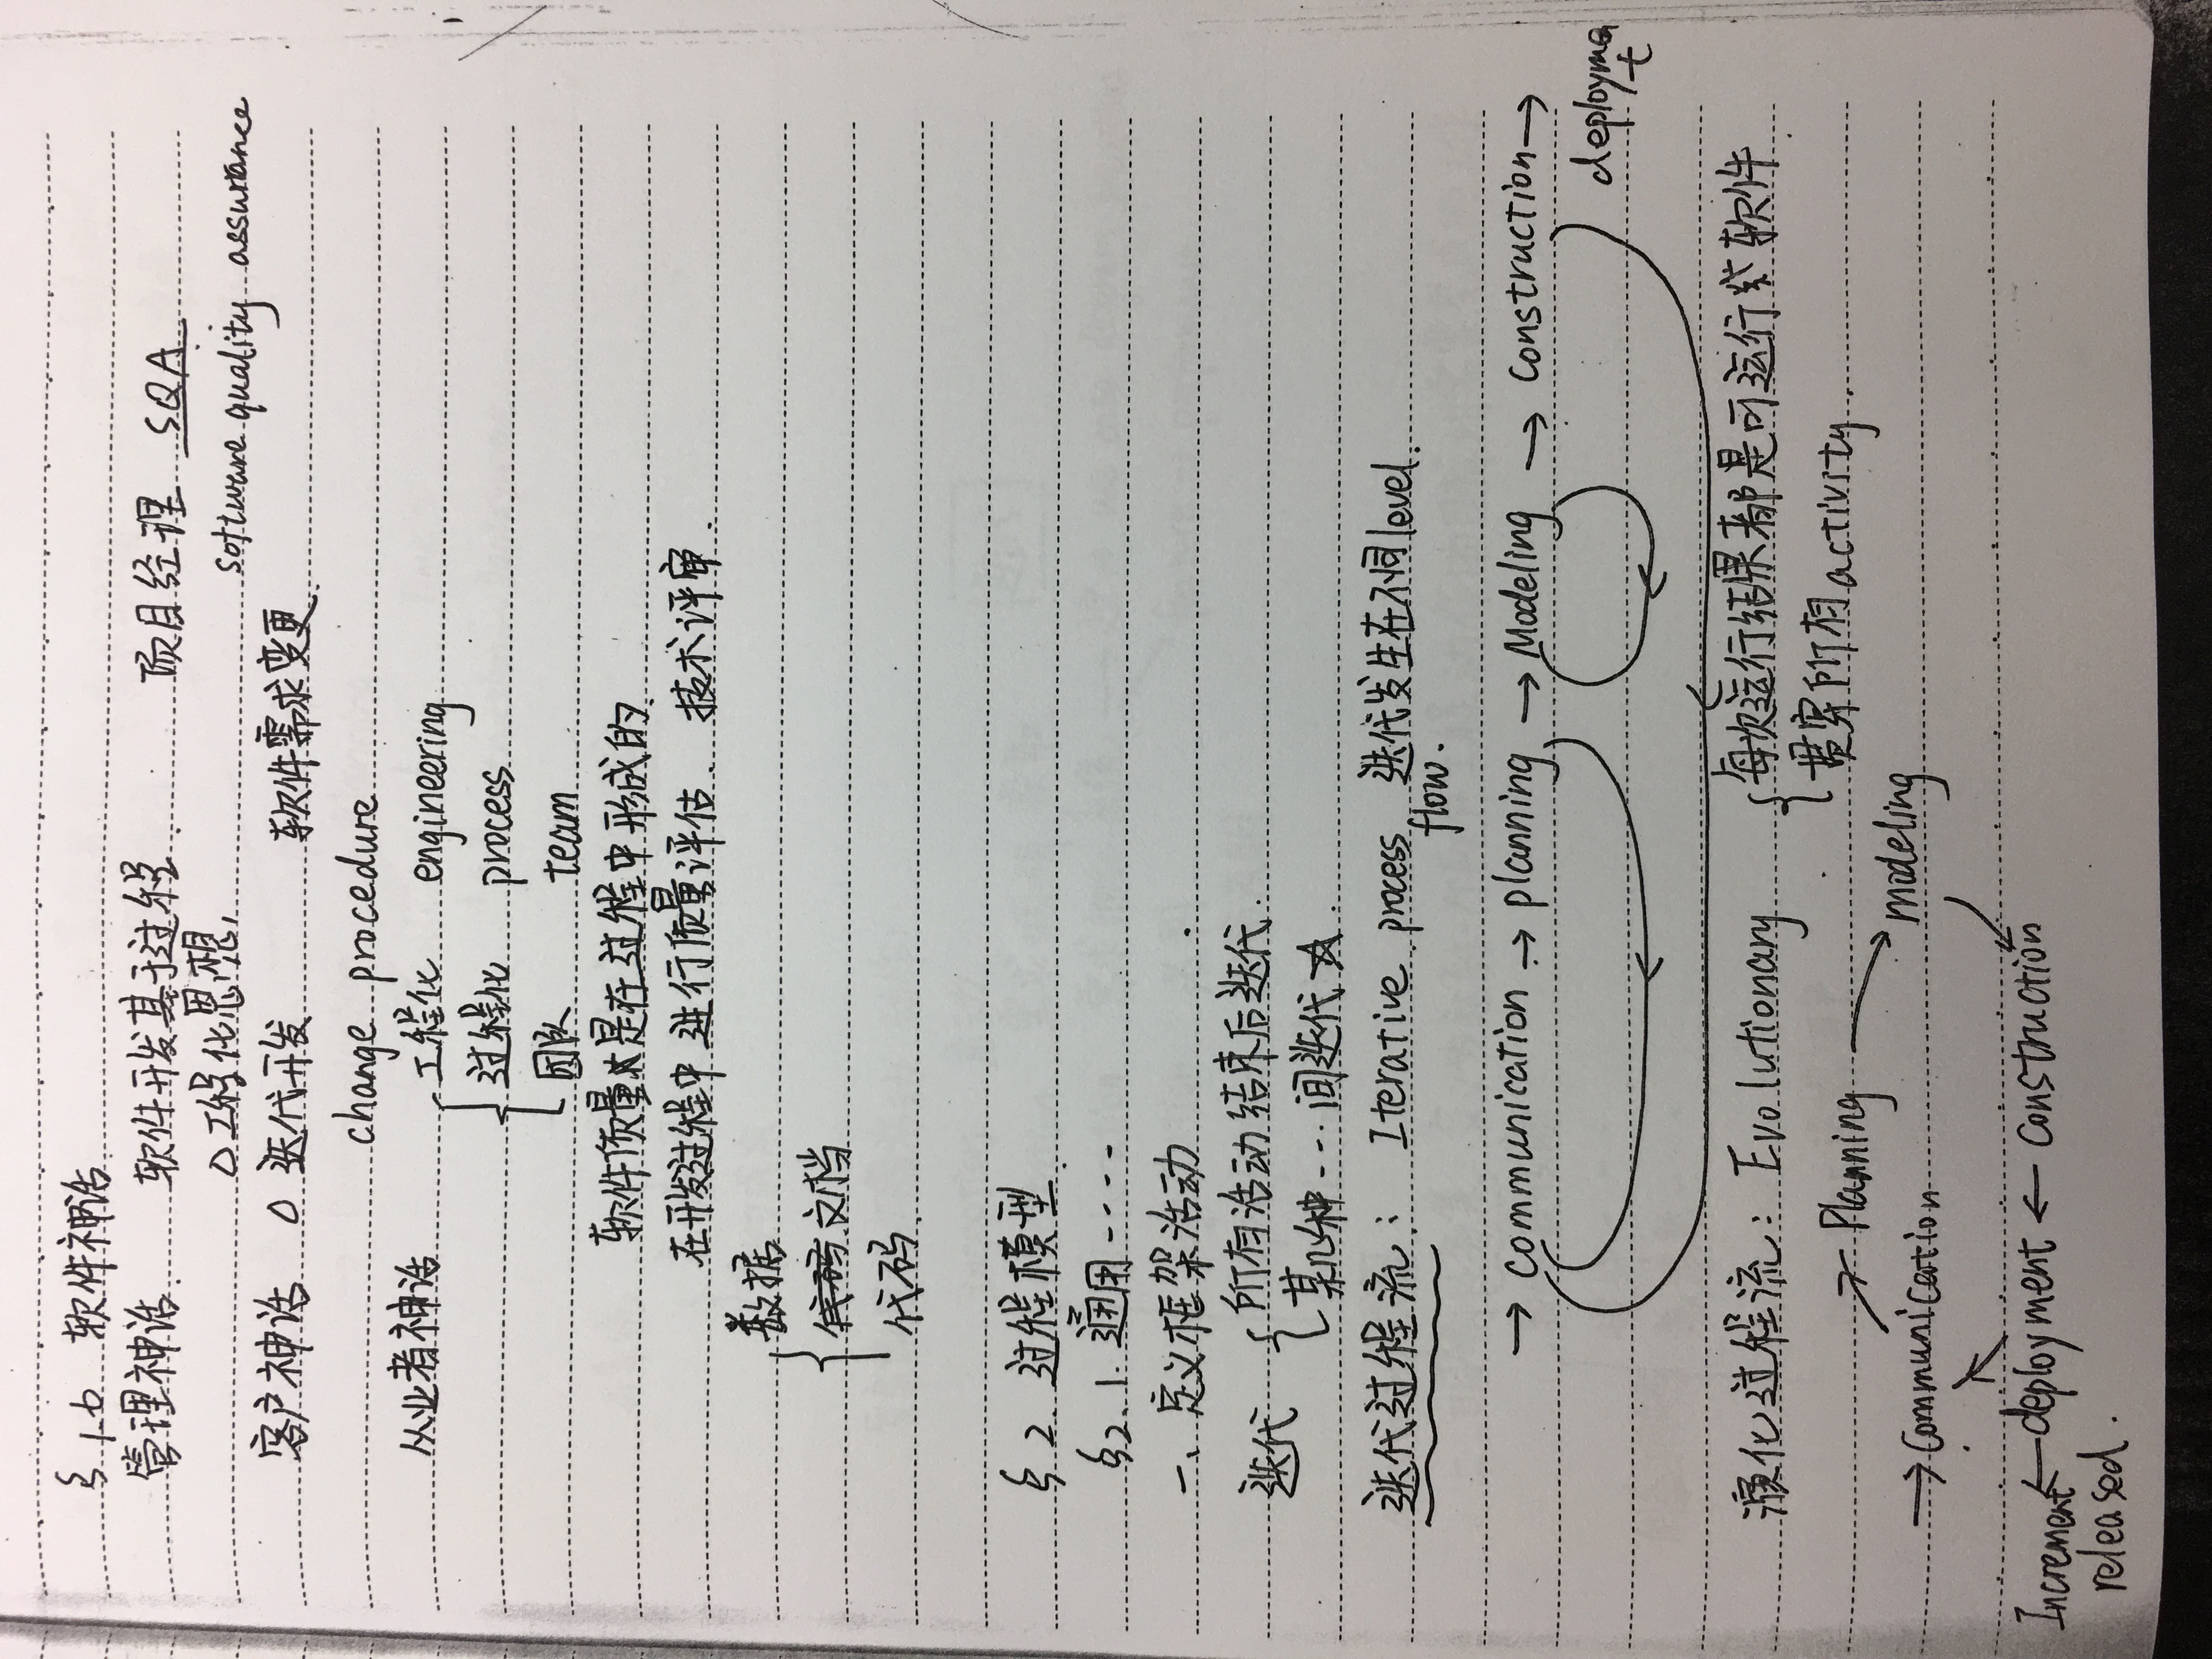 § 1.6 软件神话
管理神话. 软件开发基于过程. 项目经理 SQA
△工程化思想, software quality assurance
客户神话 △ 迭代开发 软件需求变更.
change procedure
从业者神话 工程化 engineering
过程化 process
团队 team
软件质量是在过程中形成的.
在开发过程中进行质量评估、技术评审.
数据
代码 文档
代码.
§ 2. 过程模型.
§2.1. 通用----
一、定义框架活动
迭代 所有活动结束后迭代.
某几种---间迭代☆.
迭代过程流: Iterative process 迭代发生在不同level.
flow.
→ communication → planning → Modeling → Construction →
deployment
演化过程流: Evolutionary 每次运行结果都是可运行软件
贯穿所有activity.
Planning
modeling
→ Communication
Increment ← deployment ← Construction
released.